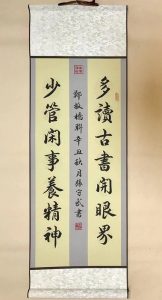 多讀古書開眼界
鄭板橋聯辛丑秋月孫守武書
少管閑事養精神